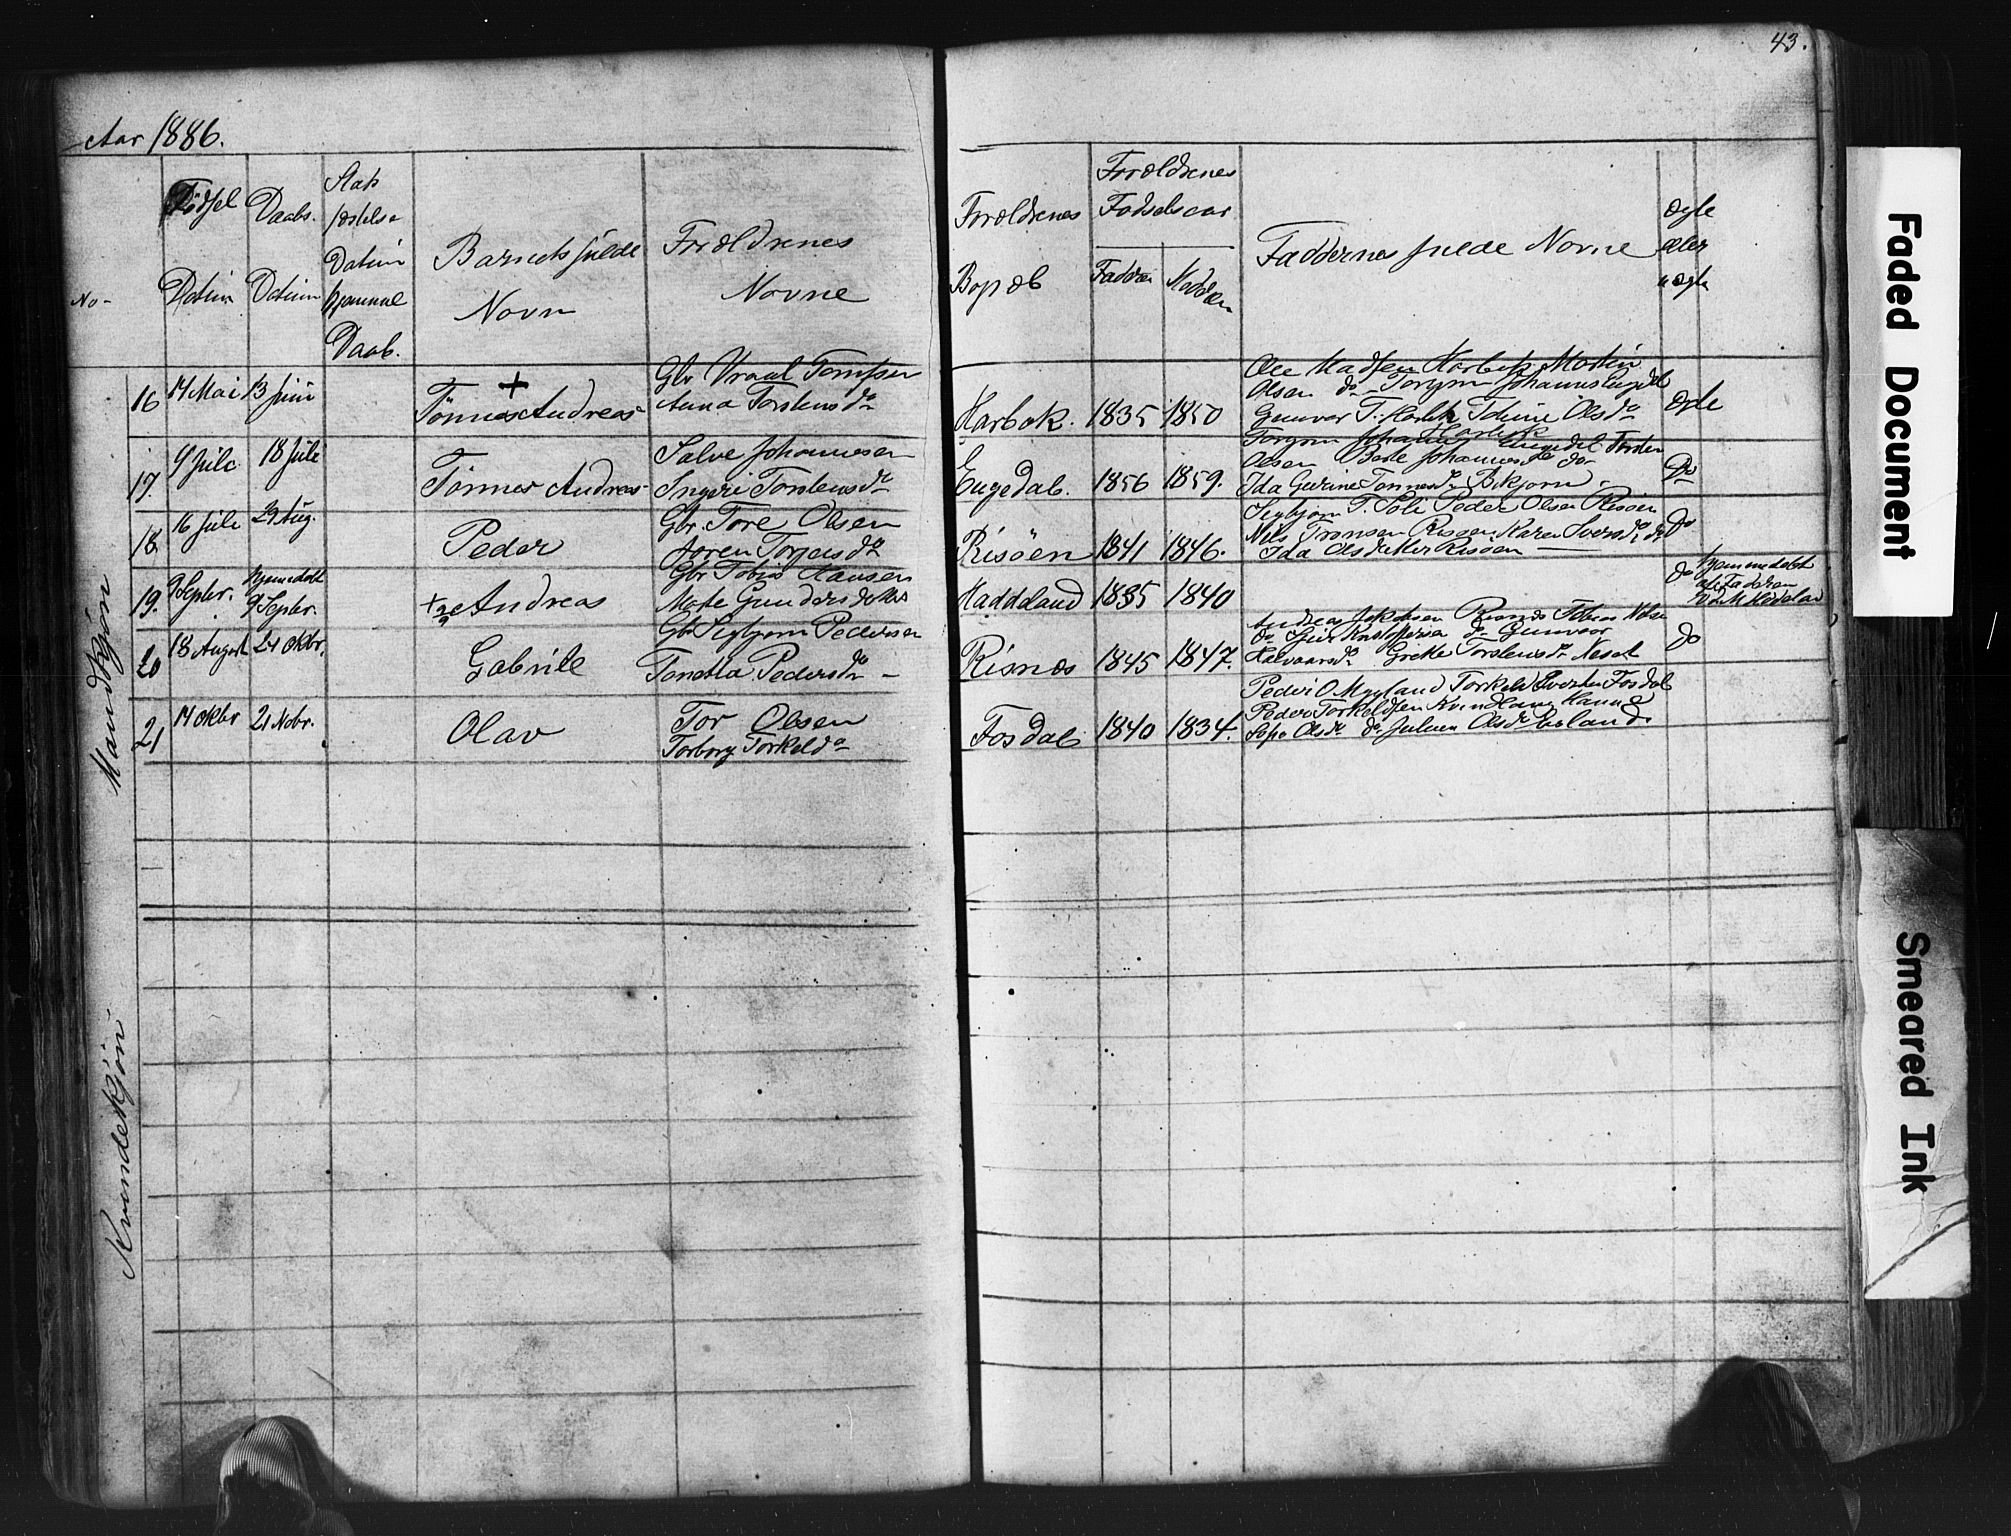 43.
Aar 1886.
No-
Födsel
Datum
Daabs.
Datum
Stats
Datum
hjemme
Daab.
Barnets fulde
Navn
Forældrenes
Navne
Forældrenes
Bopæl
Forældrenes
Fødselsaar
Fadder
Moder
Faddernes fulde Navne
Ægte
eller
uægte
Mandkjøn
16 14 Mai 13 Juni
+
Tönnes Andreas
Gbr Vraal Tomssen
Anna Torstensda
Harbak. 1835 1850
Ole Madsen Harbak Martin
Olsen do Torgrim Johannes Eugedal
Gunvor T. Harbk Tobine Olsda
Harbak
Ægte
17. 9 Juli 18 Juli
Tönnes Andreas
Salve Johannesen
Ingeri Torstensda
Eugedal. 1856 1859.
Torgrim Johannes Eugedal Torsten
Olsen Berte Johannesda do
Ida Gurine Tönnesda
Do
18. 16 Juli 29 Aug.
Peder
Gbr. Tore Olsen
Joren Torjersda
Risöen 1841 1846.
Seybjørn T. Peder Olsen Risöen
Nils Tronsen Risöen Karen Sversda do
Ida Olsdatter Risöen
do
19. 9 Septbr. hjemmedøbt
9 Septbr.
Andreas
Gbr Tobias Hansen
Marte Gundersdatter
Haddeland 1835 1840
do
hjemmedøbt
af Faderen
20 18 August 24 Oktbr.
Gabriel
Gbr Seybjørn Pedersen
Tonetta Pedersda
Risnes 1845 1847.
Andreas Jakobsen Risnes Tobias
do Gunvor
Halvaarsda Grethe Torstensda Neset
do
21 14 Oktbr 21 Nobr.
Olav
Tor Olsen
Torborg Torkelda
Fosdal 1840 1834.
Peder O Mygland Torkeld Fosdal
Peder Torkeldsen Hanne
Olsda do Juliane Olsda
Kvindekjøn
Faded Document
Smeared Ink